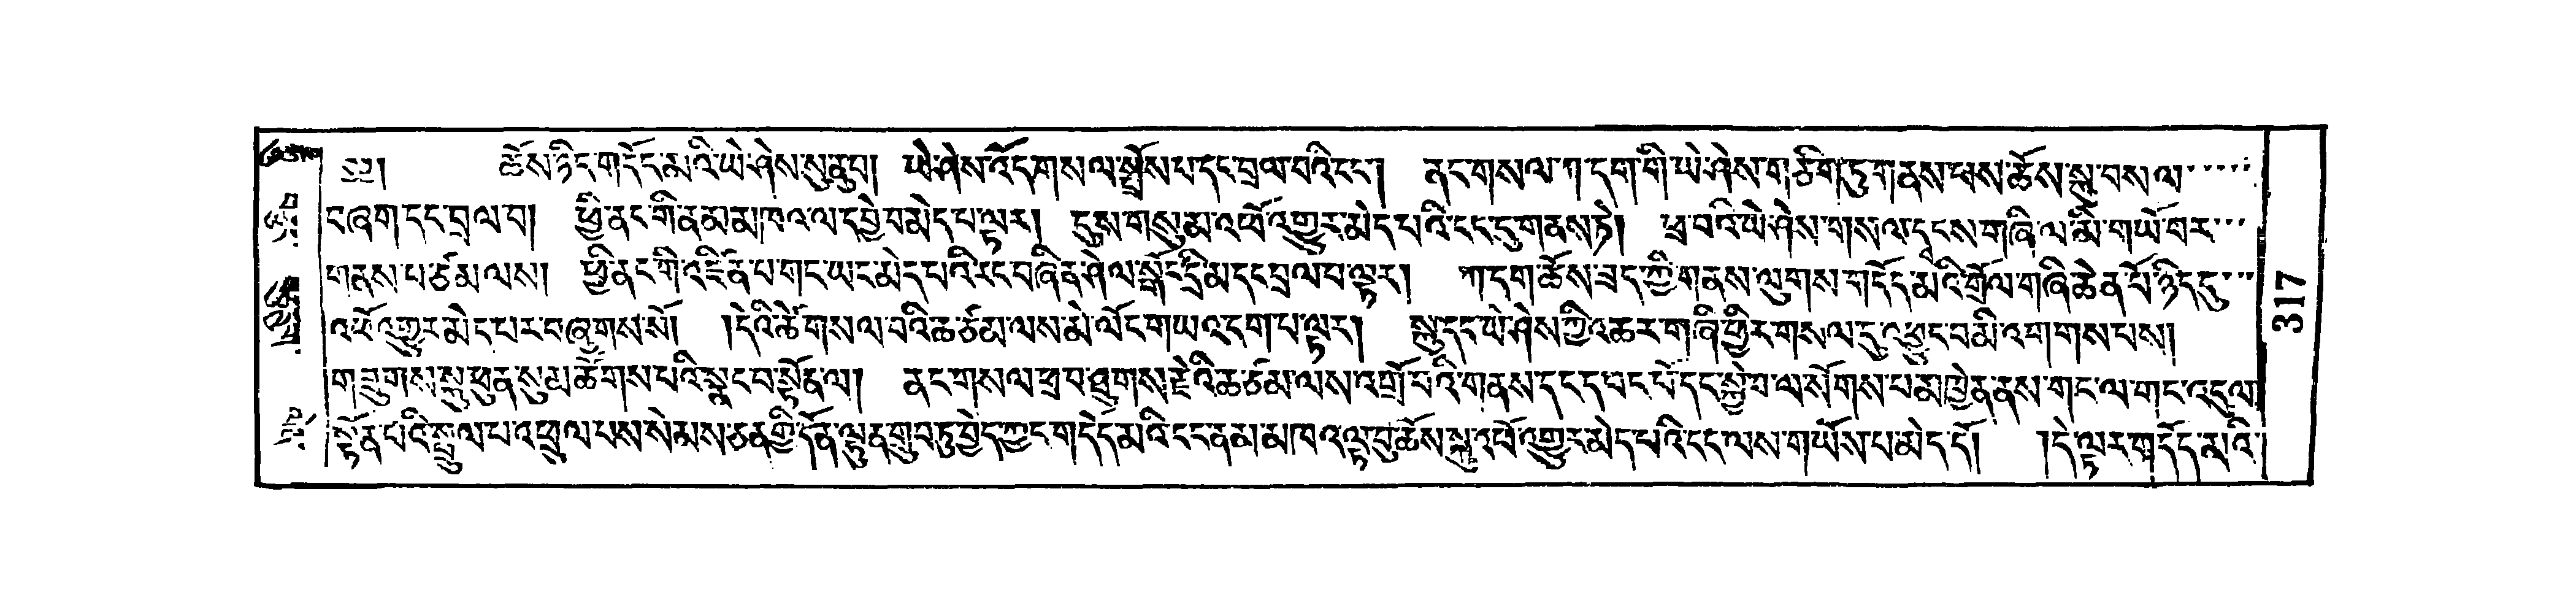 ༄༅། ཆོས་ཉིད་གདོད་མའི་ཡེ་ཤེས་སུ་ནུབ། ཡེ་ཤེས་འོད་གསལ་སྤྲོས་པ་དང་བྲལ་བའི་ངང་། ནང་གསལ་ཀ་དག་གི་ཡེ་ཤེས་གཅིག་ཏུ་གནས་པས་ཆོས་སྐུ་བསལ་
ངཞག་དང་བྲལ་བ། ཕྱི་ནང་གི་ནམ་མཁའ་ལ་དབྱེ་བ་མེད་པ་ལྟར། དུས་གསུམ་འཕོ་འགྱུར་མེད་པའི་ངང་དུ་གནས་ཏེ། ཕྲ་བའི་ཡེ་ཤེས་གསལ་དྭངས་གཞི་ལ་མི་གཡོ་བར་
གནས་པ་ཙམ་ལས། ཕྱི་ནང་གི་འཛིན་པ་གང་ཡང་མེད་པའི་རང་བཞིན་ཤེལ་སྒོང་དྲི་མ་དང་བྲལ་བ་ལྟར། ཀ་དག་ཆོས་ཟད་ཀྱི་གནས་ལུགས་གདོད་མའི་གྲོལ་གཞི་ཆེན་པོ་ཉིད་དུ་
འཕོ་འགྱུར་མེད་པར་བཞུགས་སོ། །དེའི་ཚེ་གསལ་བའི་ཆ་ཙམ་ལས་མེ་ལོང་གཡའ་དག་པ་ལྟར། སྐུ་དང་ཡེ་ཤེས་ཀྱི་འཆར་གཞི་ཕྱིར་གསལ་དུ་འབྱུང་བ་མི་འགགས་པས།
གཟུགས་སྐུ་ཕུན་སུམ་ཚོགས་པའི་སྣང་བ་སྟོན་ལ། ནང་གསལ་ཕྲ་བ་ཐུགས་རྗེའི་ཆ་ཙམ་ལས་འགྲོ་བའི་གནས་དང་དབང་པོ་དང་སྐྱེ་བ་ལ་སོགས་པ་མཁྱེན་ནས་གང་ལ་གང་འདུལ་
སྟོན་པའི་སྤྲུལ་པ་འཕྲུལ་པས་སེམས་ཅན་གྱི་དོན་ལྷུན་གྲུབ་ཏུ་བྱེད་ཀྱང་གདོད་མའི་ངང་ནམ་མཁའ་ལྟ་བུ་ཆོས་སྐུ་འཕོ་འགྱུར་མེད་པའི་ངང་ལས་གཡོས་པ་མེད་དོ། །དེ་ལྟར་གདོད་མའི་